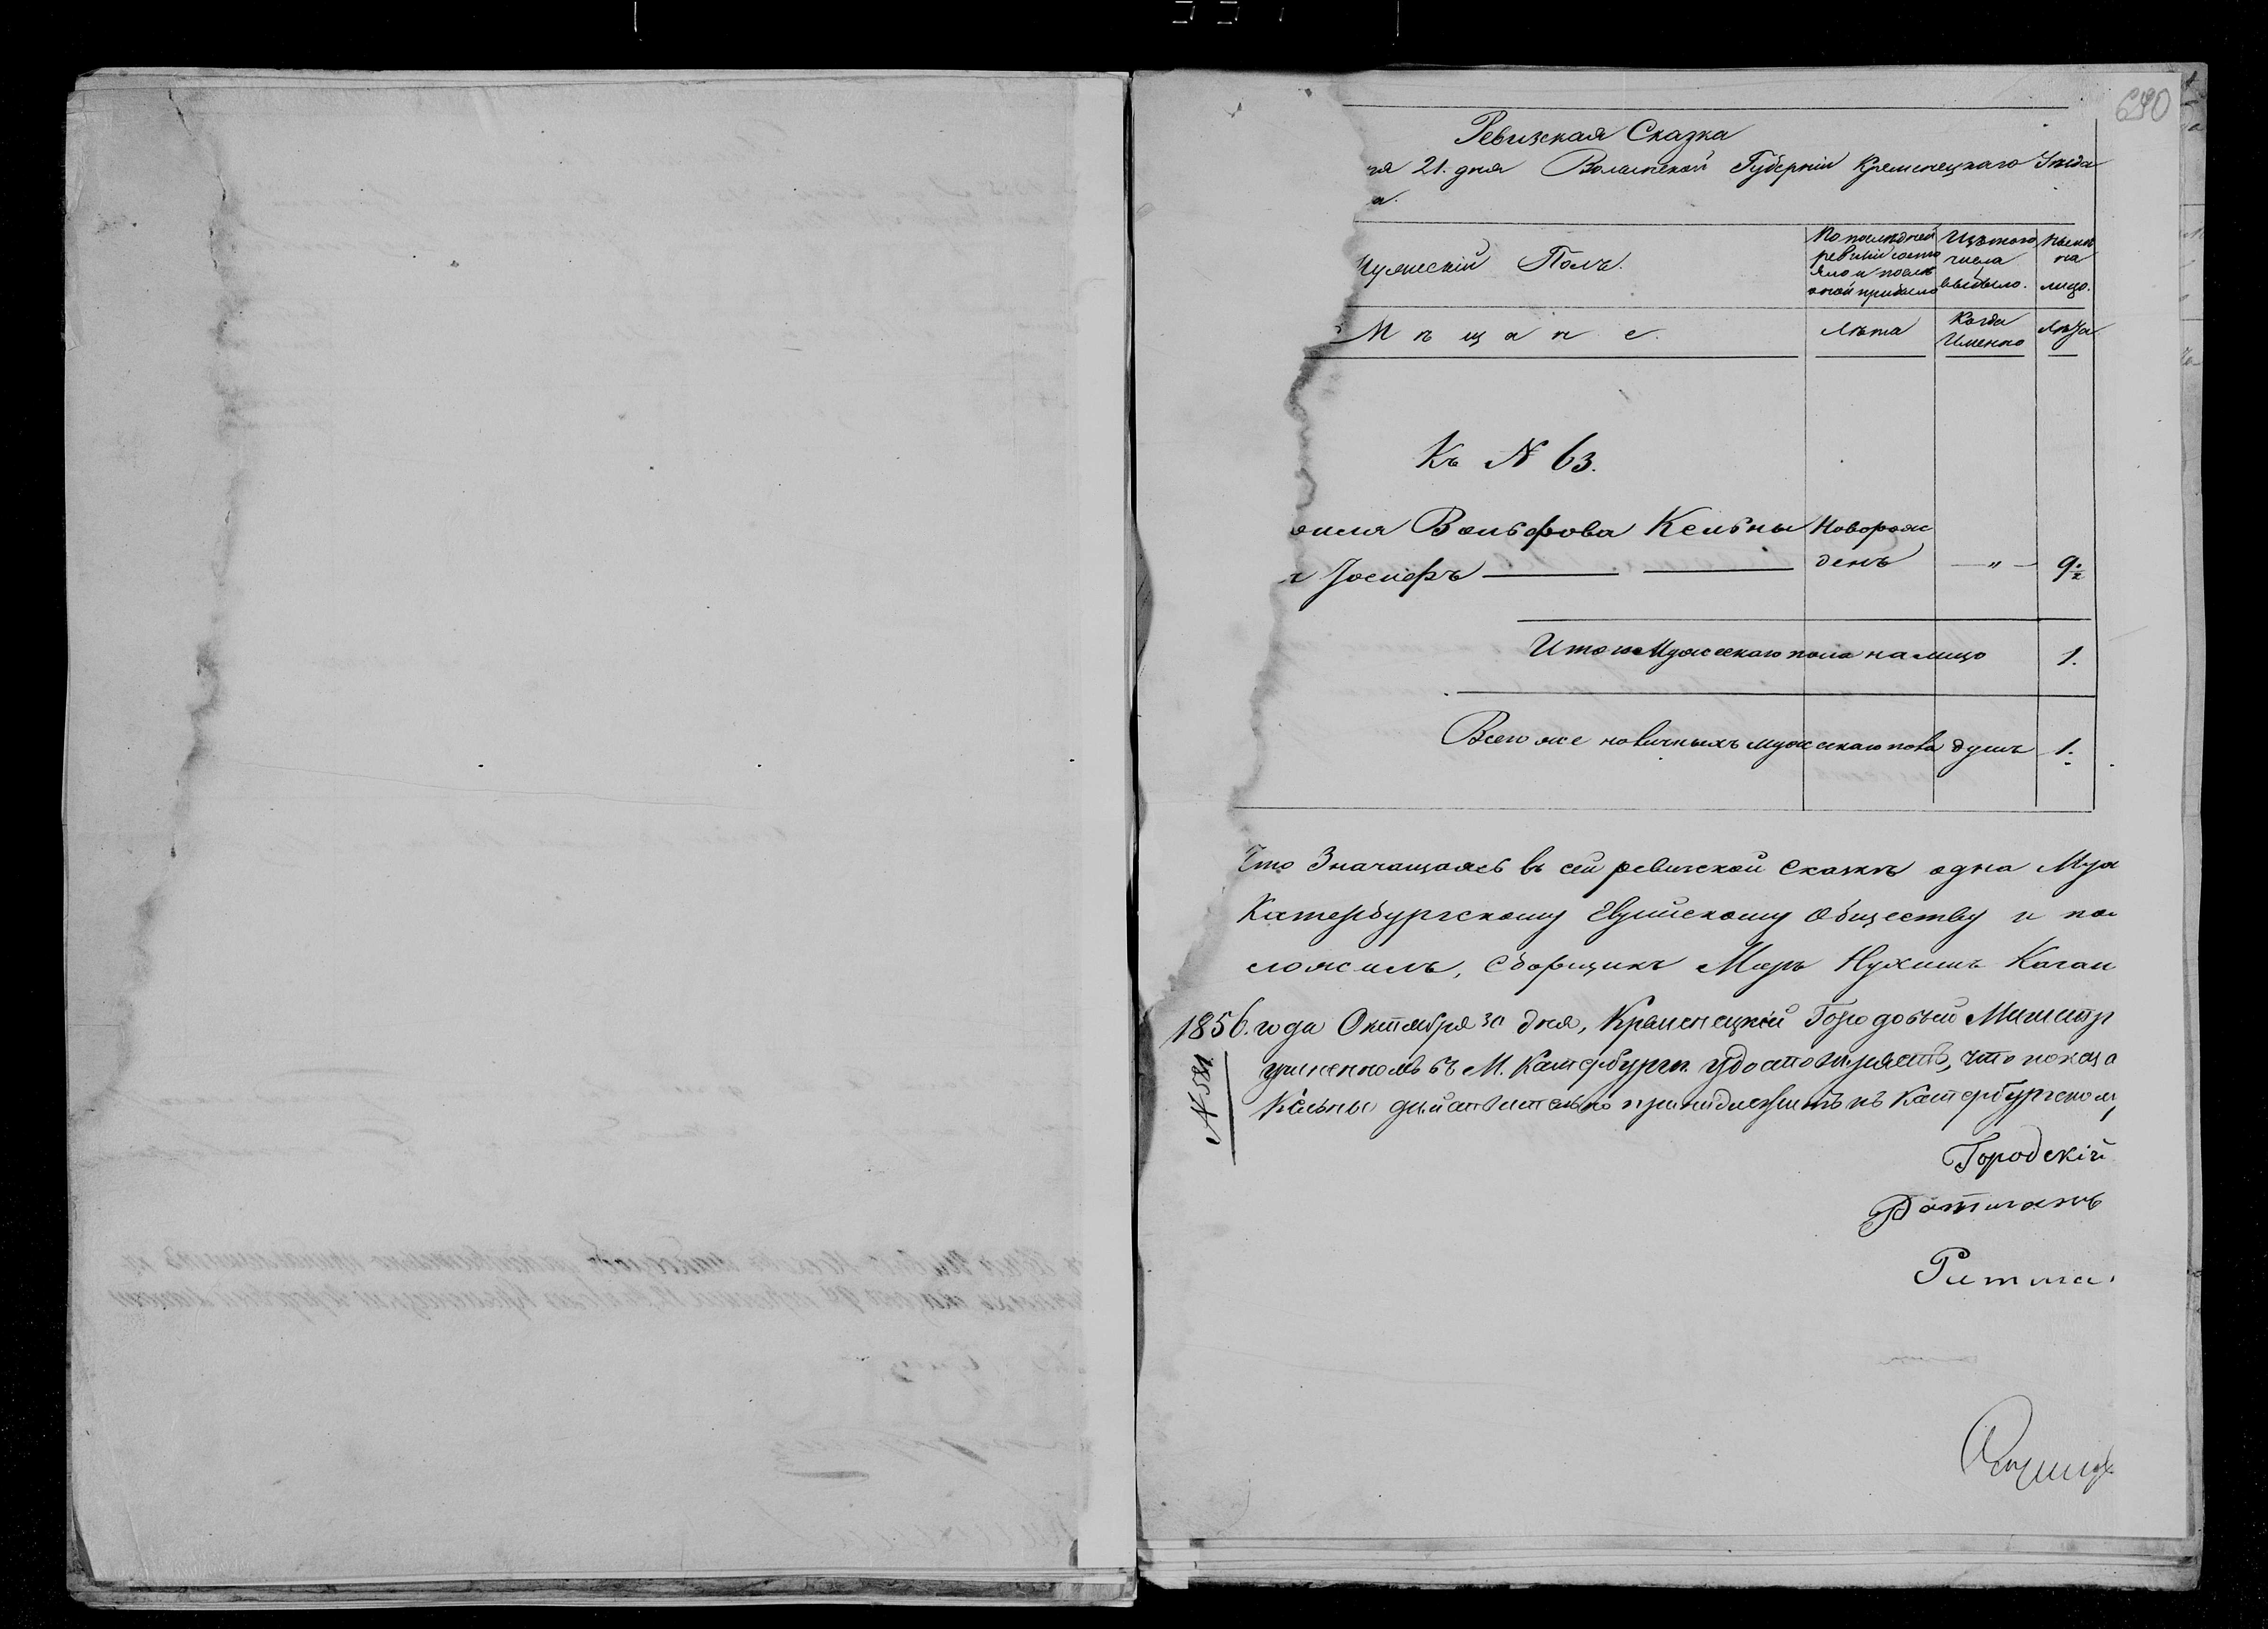 690
Ревизская Сказка
ря 21. дня Волынской Губерніи Кременецкаго Уѣзда
а.
Мужескій Полъ.
По последней ревизіи состояло и после оной прибыло
Изъ того числа выбыло.
Ныне на лицо.
Мѣщане.
Лѣта
Когда Именно
Лѣта
Къ N 63.
Вольфова Кельны Новорож
Іосифъ — — денъ — " — 9.
Итого Мужескаго пола на лицо 1.
Всего же наличныхъ мужескаго пола душъ 1.
Что Значащаясь въ сей ревизской сказкѣ одна Муж
Катербургскому Еврейскому Обществу и по
ложилъ, Сборщикъ Меръ Нухимъ Каган
1856. года Октября 30 дня, Кременецкій Городовый Магистр
N 581.
учиненномъ въ М. Катербурги удостовѣряетъ, что показа
Кельны дѣйствительно принадлежитъ къ Катербургскому
Городскій
Ратманъ
Ратма